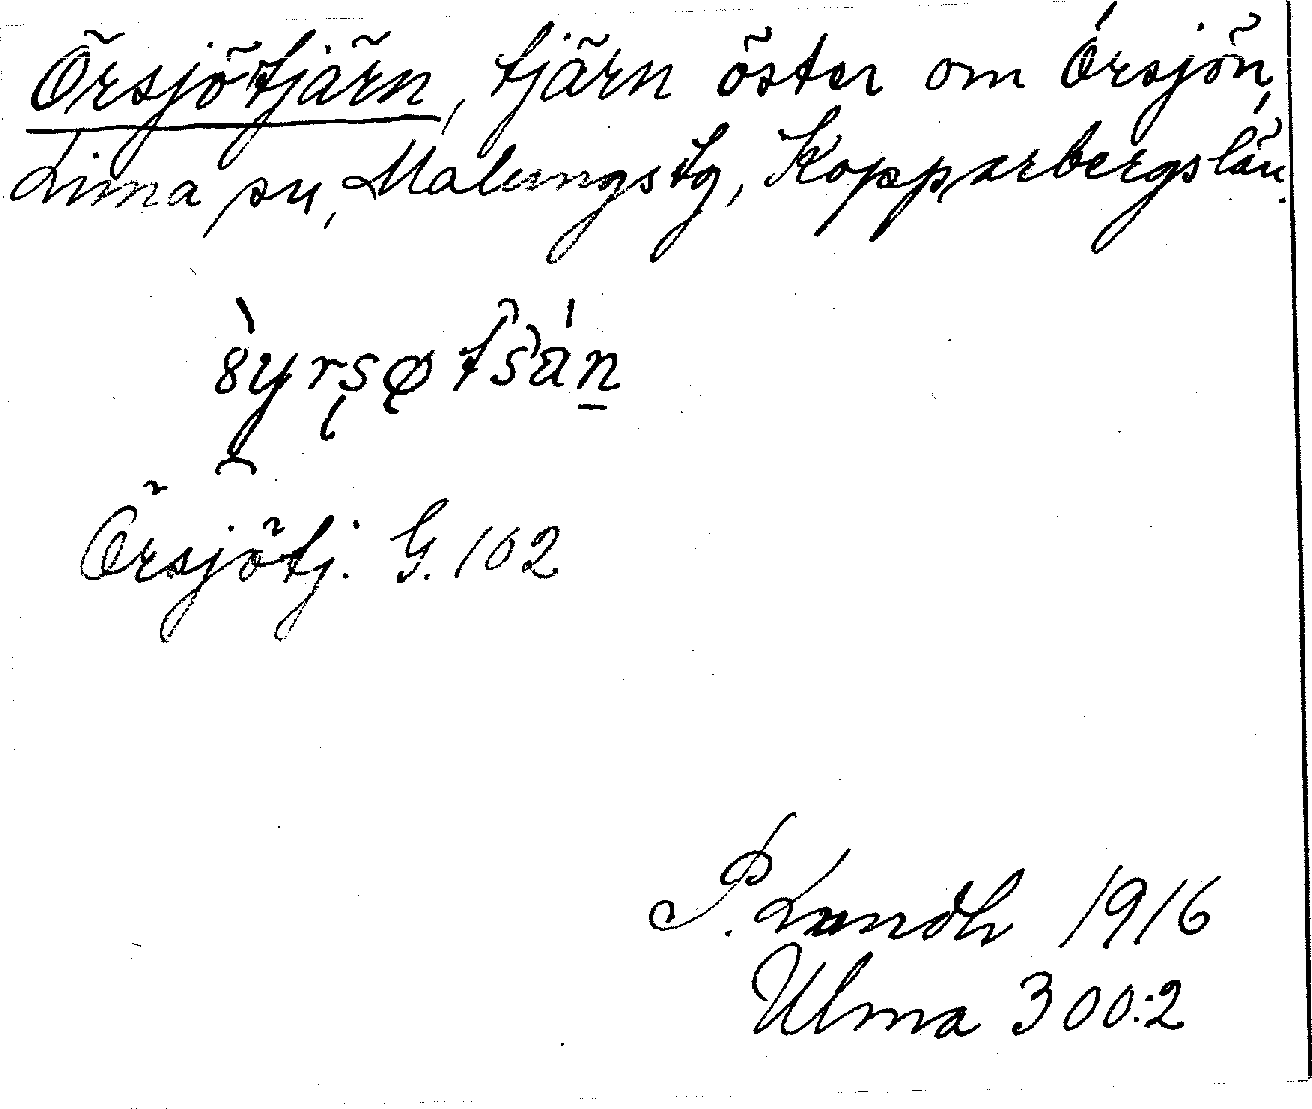 Örsjötjärn, tjärn öster om Örsjön,
Lima sn, Malungs tg, Kopparbergs län.
Örsjötj. G. 102
P. Lundh 1916
Ulma 300:2